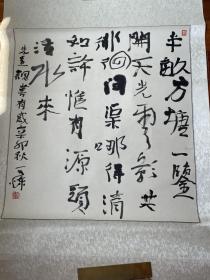 半畝方塘一鑑
開天光雲影共
徘徊问渠哪得清
如許惟有源頭
活水來
朱熹觀書有感辛卯秋一